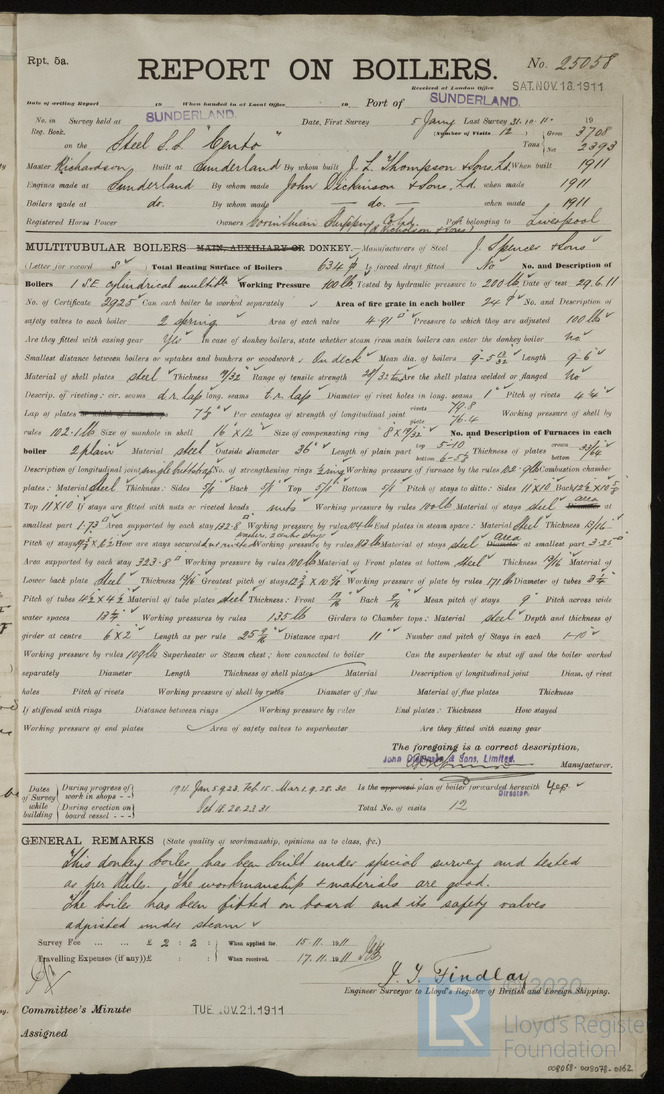 Rpt. 5a.
REPORT ON BOILERS.
No. 25058
Received at London Office
SAT. NOV. 18. 1911
Date of writing Report 19 When handed in at Local Office 19 Port of SUNDERLAND.
No. in Survey held at SUNDERLAND. Date, First Survey 5 Jany Last Survey 31.10.11. 19
Reg. Book. (Number of Visits 12)
on the Steel S.S. "Cento" Tons Gross 3708 Net 2393
Master Richardson Built at Sunderland By whom built J. L. Thompson & Sons, Ld. When built 1911
Engines made at Sunderland By whom made John Dickinson & Sons, Ld. when made 1911
Boilers made at do. By whom made — do. — when made 1911
Registered Horse Power Owners Corinthian Shipping Co Ld. (Nicholson & Sons) Port belonging to Liverpool
MULTITUBULAR BOILERS MAIN, AUXILIARY OR DONKEY.—Manufacturers of Steel J. Spencer & Sons
(Letter for record S) Total Heating Surface of Boilers 634 Is forced draft fitted No No. and Description of
Boilers 1 S.E. cylindrical multib. Working Pressure 100 lb Tested by hydraulic pressure to 200 lb Date of test 29.6.11
No. of Certificate 2925 Can each boiler be worked separately Area of fire grate in each boiler 24 No. and Description of
safety valves to each boiler 2 spring Area of each valve 4.91 Pressure to which they are adjusted 100 lb
Are they fitted with easing gear Yes In case of donkey boilers, state whether steam from main boilers can enter the donkey boiler No
Smallest distance between boilers or uptakes and bunkers or woodwork On deck Mean dia. of boilers 9-5 Length 9-6
Material of shell plates steel Thickness 19/32 Range of tensile strength 28/32 tons Are the shell plates welded or flanged No
Descrip. of riveting: cir. seams d.r. lap long. seams t.r. lap Diameter of rivet holes in long. seams 1" Pitch of rivets
Lap of plates or width of butt straps Per centages of strength of longitudinal joint rivets 79.8 plate 76.4 Working pressure of shell by
rules 102.1 lb Size of manhole in shell 16" x 12" Size of compensating ring 8 x 19/32 No. and Description of Furnaces in each
boiler 2 plain Material steel Outside diameter 36" Length of plain part top 5-10 bottom Thickness of plates crown bottom
Description of longitudinal joint single buttstrap No. of strengthening rings Working pressure of furnace by the rules Combustion chamber
plates: Material steel Thickness: Sides Back Top Bottom Pitch of stays to ditto: Sides 11 x 10 Back
Top 11 x 10 If stays are fitted with nuts or riveted heads nuts Working pressure by rules 100 lb Material of stays steel area Diameter at
smallest part 1.73 Area supported by each stay 132.8 Working pressure by rules 104 lb End plates in steam space: Material Steel Thickness
Pitch of stays How are stays secured Working pressure by rules Material of stays steel area Diameter at smallest part 3.25
Area supported by each stay 323.8 Working pressure by rules 100 lb Material of Front plates at bottom steel Thickness Material of
Lower back plate Steel Thickness Greatest pitch of stays Working pressure of plate by rules 171 lb Diameter of tubes
Pitch of tubes Material of tube plates steel Thickness: Front Back Mean pitch of stays 9" Pitch across wide
water spaces Working pressures by rules 135 lb Girders to Chamber tops: Material steel Depth and thickness of
girder at centre 6 x 2 Length as per rule Distance apart 11" Number and pitch of Stays in each 1-10"
Working pressure by rules 109 lb Superheater or Steam chest; how connected to boiler Can the superheater be shut off and the boiler worked
separately Diameter Length Thickness of shell plates Material Description of longitudinal joint Diam. of rivet
holes Pitch of rivets Working pressure of shell by rules Diameter of flue Material of flue plates Thickness
If stiffened with rings Distance between rings Working pressure by rules End plates: Thickness How stayed
Working pressure of end plates Area of safety valves to superheater Are they fitted with easing gear
The foregoing is a correct description,
John Dickinson & Sons, Limited. Manufacturer.
Director.
Dates of Survey while building
During progress of work in shops - - 1911. Jan 5. 9. 23. Feb 15. Mar 1. 9. 28. 30
During erection on board vessel - - - Oct 18. 20. 23. 31
Is the approved plan of boiler forwarded herewith Yes
Total No. of visits 12
GENERAL REMARKS (State quality of workmanship, opinions as to class, &c.)
This donkey boiler has been built under special survey and tested
as per Rules. The workmanship & materials are good.
The boiler has been fitted on board and its safety valves
adjusted under steam
Survey Fee ... ... £ 2 : 2 : When applied for, 15.11.1911
Travelling Expenses (if any) £ : : When received, 17.11.1911
J. T. Findlay
Engineer Surveyor to Lloyd's Register of British and Foreign Shipping.
Committee's Minute TUE. NOV. 21. 1911
Assigned
© 2020
LR
Lloyd's Register
Foundation
008068-008078-0162